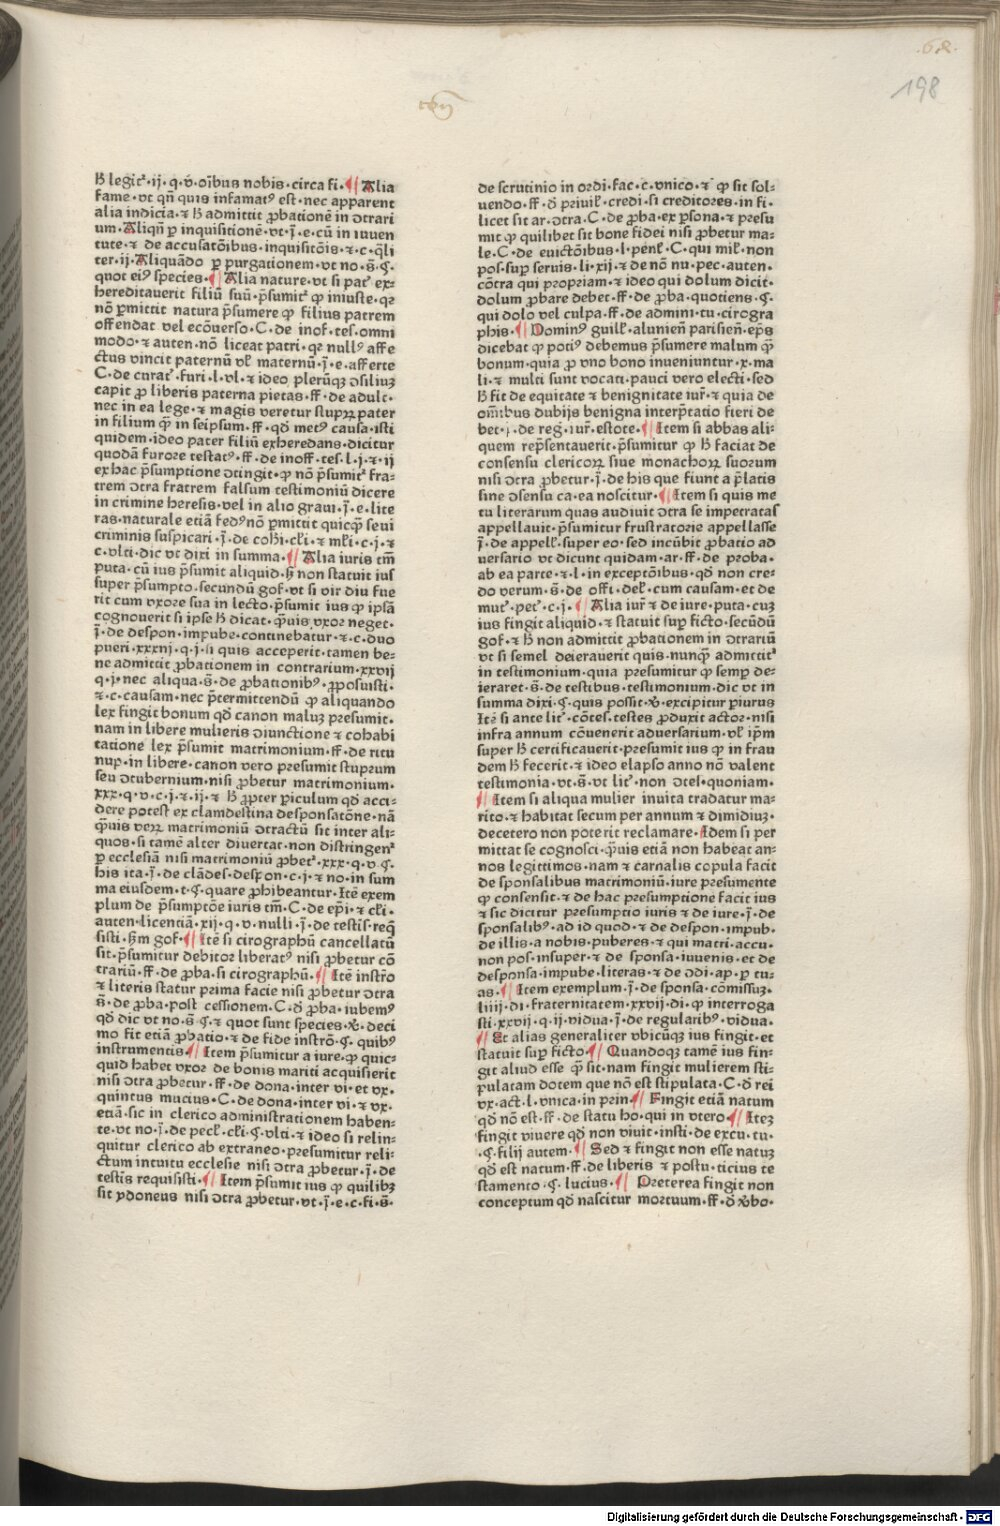 .68.
198
ꝧ legit᷑·ij·q·v̄·oībus nobis·circa fi·¶ Alia
fame·vt qn̄ quis infamatꝰ est·nec apparent
alia indicia·⁊ ꝧ admittit ꝓbationē in ꝯtrari
um·Aliqn̄ ꝑ inquisitionē·vt·j̄·e·cū in iuuen
tute·⁊ de accusatōibus·inquisitōis·⁊·c·q̄li
ter·ij·Aliquādo ꝑ purgationem·vt no·s̄·ꝯ̧·
quot eiꝰ species·¶ Alia nature·vt si pat᷑ ex⸗
hereditauerit filiū suū·p̄sumit᷑ ꝙ iniuste·qꝛ
nō ꝑmittit natura p̄sumere ꝙ filius patrem
offendat vel ecōuerso·C·de inof·tes·omni
modo·⁊ auten·nō liceat patri·qꝛ nullꝰ affe
ctus vincit paternū vl᷑ maternū·j̄·e·afferte
C·de curat᷑·furi·l·vl·⁊ ideo plerūqꝫ ꝯsiliuꝫ
capit ꝓ liberis paterna pietas·ff·de adult·
nec in ea lege·⁊ magis veretur stupꝝ pater
in filium q̄ in seipsum·ff·qd̄ metꝰ causa·isti
quidem·ideo pater filiū exheredans·dicitur
quodā furore testatꝰ·ff·de inoff·tes·l·j·⁊·ij
ex hac p̄sumptione ꝯtingit·ꝙ nō p̄sumit᷑ fra⸗
trem ꝯtra fratrem falsum testimoniū dicere
in crimine heresis·vel in alio graui·j̄·e·lite
ras·naturale etiā fedꝰ nō ꝑmittit quicq̄ seui
criminis suspicari·j̄·de cohī·cl̄i·⁊ ml̄i·c·j·⁊
c·vlti·dic vt dixi in summa·¶ Alia iuris tm̄
puta·cū ius p̄sumit aliquid·sꝫ non statuit ius
super p̄sumpto·secundū gof·vt si vir diu fue
rit cum vxore sua in lecto·p̄sumit ius ꝙ ipsā
cognouerit si ipse ꝧ dicat·q̄uis vxor neget·
j̄·de despon·impube·continebatur·⁊·c·duo
pueri·xxxnj·q·j·si quis acceperit·tamen be⸗
ne admittit ꝓbationem in contrarium·xxvij
q·j·nec aliqua·s̄·de ꝓbationibꝰ·ꝓposuisti·
⁊·c·causam·nec p̄termittendū ꝙ aliquando
lex fingit bonum qd̄ canon maluꝫ presumit·
nam in libere mulieris ꝯiunctione ⁊ cohabi
tatione lex p̄sumit matrimonium·ff·de ritu
nup·in libere·canon vero presumit stuprum
seu ꝯtubernium·nisi ꝓbetur matrimonium·
xxx·q·v·c·j·⁊·ij·⁊ ꝧ ꝓpter ꝑiculum qd̄ acci⸗
dere potest ex clamdestina desponsatōne·nā
q̄uis veꝝ matrimoniū ꝯtractū sit inter ali⸗
quos·si tamē alter diuertat·non distringen᷑
ꝑ ecclesiā nisi matrimoniū ꝓbet᷑·xxx·q·v·ꝯ̧·
his ita·j̄·de clādes·despon·c·j·⁊ no·in sum
ma eiusdem·t·ꝯ̧·quare ꝓhibeantur·Itē exem
plum de p̄sumptōe iuris tm̄·C·de ep̄i·⁊ cl̄i·
auten·licentiā·xij·q·v·nulli·j̄·de testis·req̄
sisti·sꝫm gof·¶ Itē si cirographū cancellatū
sit·p̄sumitur debitor liberatꝰ nisi ꝓbetur cō
trariū·ff·de ꝓba·si cirographū·¶ Itē instr̄o
⁊ literis statur prima facie nisi ꝓbetur ꝯtra
s̄·de ꝓba·post cessionem·C·d̄ ꝓba·iubemꝰ
qd̄ dic vt no·s̄·ꝯ̧·⁊ quot sunt species·v̄·deci
mo fit etiā ꝓbatio·⁊ de fide instrō·ꝯ̧·quibꝰ
instrumentis·¶ Item p̄sumitur a iure·ꝙ quic⸗
quid habet vxor de bonis mariti acquisierit
nisi ꝯtra ꝓbetur·ff·de dona·inter vi·et vx·
quintus mucius·C·de dona·inter vi·⁊ vx·
etiā·sic in clerico administrationem haben⸗
te·vt no·j̄·de pecl̄·cl̄i·ꝯ̧·vlti·⁊ ideo si relin⸗
quitur clerico ab extraneo·presumitur reli⸗
ctum intuitu ecclesie nisi ꝯtra ꝓbetur·j̄·de
testīs requisisti·¶ Item p̄sumit ius ꝙ quilibꝫ
sit ydoneus nisi ꝯtra ꝓbetur·vt·j̄·e·c·fi·s̄·
de scrutinio in ordi·fac·c·vnico·⁊ ꝙ sit sol⸗
uendo·ff·d̄ priuil᷑·credi·si creditores·in fi·
licet sit ar·ꝯtra·C·de ꝓba·ex ꝑsona·⁊ presu
mit ꝙ quilibet sit bone fidei nisi ꝓbetur ma⸗
le·C·de euictōibus·l·penl᷑·C·qui mil᷑·non
pos·suꝑ seruis·li·xij·⁊ de nō nu·pec·auten·
cōtra qui propriam·⁊ ideo qui dolum dicit·
dolum ꝓbare debet·ff·de ꝓba·quotiens·ꝯ̧·
qui dolo vel culpa·ff·de admini·tu·cirogra
phis·¶ Dominꝰ guil᷑·alunien̄ parisien̄·ep̄s
dicebat ꝙ potiꝰ debemus p̄sumere malum q̄
bonum·quia ꝓ vno bono inueniuntur·x·ma
li·⁊ multi sunt vocati·pauci vero electi·sed
ꝧ fit de equitate ⁊ benignitate iur᷑·⁊ quia de
om̄ibus dubijs benigna interp̄tatio fieri de
bet·j̄·de reg·iur᷑·estote·¶ Item si abbas ali⸗
quem rep̄sentauerit·p̄sumitur ꝙ ꝧ faciat de
consensu clericoꝝ siue monachoꝝ suorum
nisi ꝯtra ꝓbetur·j̄·de his que fiunt a p̄latis
sine ꝯsensu ca·ea noscitur·¶ Item si quis me
tu literarum quas audiuit ꝯtra se impecratas
appellauit·p̄sumitur frustratorie appellasse
j̄·de appell᷑·super eo·sed incūbit ꝓbatio ad
uersario vt dicunt quidam·ar·ff·de proba·
ab ea parte·⁊·l·in exceptōibus·qd̄ non cre⸗
do verum·s̄·de offi·del᷑·cum causam·et de
mut᷑·pet᷑·c·j·¶ Alia iur᷑ ⁊ de iure·puta·cuꝫ
ius fingit aliquid·⁊ statuit suꝑ ficto·secūdū
gof·⁊ ꝧ non admittit ꝓbationem in ꝯtrariū
vt si semel deierauerit quis·nunq̄ admittit᷑
in testimonium·quia presumitur ꝙ semꝑ de⸗
ieraret·s̄·de testibus·testimonium·dic vt in
summa dixi·ꝯ̧·quis possit·v̄·excipitur ꝑiurus
Itē si ante lit᷑·cōtes·testes ꝓduxit actor·nisi
infra annum cōuenerit aduersarium·vl᷑ ip̄m
super ꝧ certificauerit·presumit ius ꝙ in frau
dem ꝧ fecerit·⁊ ideo elapso anno nō valent
testimonia·vt·s̄·vt lit᷑·non ꝯtel·quoniam·
¶ Item si aliqua mulier inuita tradatur ma⸗
rito·⁊ habitat secum per annum ⁊ dimidiuꝫ·
decetero non poterit reclamare·Idem si per
mittat se cognosci·q̄uis etiā non habeat an⸗
nos legittimos·nam ⁊ carnalis copula facit
de sponsalibus matrimoniū·iure presumente
ꝙ consensit·⁊ de hac presumptione facit ius
⁊ sic dicitur presumptio iuris ⁊ de iure·j̄·de
sponsalibꝰ·ad id quod·⁊ de despon·impub·
de illis·a nobis·puberes·⁊ qui matri·accu·
non pos·insuper·⁊ de sponsa·iuuenis·et de
desponsa·impube·literas·⁊ de ꝯdi·ap·ꝑ tu⸗
as·¶ Item exemplum·j̄·de sponsa·cōmissuꝫ·
liiij·di·fraternitatem·xxvij·di·ꝙ interroga
sti·xxvij·q·ij·vidua·j̄·de regularibꝰ·vidua·
¶ Et alias generaliter vbicūqꝫ ius fingit·et
statuit suꝑ ficto·¶ Quandoqꝫ tamē ius fin⸗
git aliud esse q̄ sit·nam fingit mulierem sti⸗
pulatam dotem que nō est stipulata·C·d̄ rei
vx·act·l·vnica·in prin·¶ Fingit etiā natum
qd̄ nō est·ff·de statu ho·qui in vtero·¶ Iteꝫ
fingit viuere qd̄ non viuit·insti·de excu·tu·
·ꝯ̧·filij autem·¶ Sed ⁊ fingit non esse natuꝫ
qd̄ est natum·ff·de liberis ⁊ postu·ticius te
stamento·ꝯ̧·lucius·¶ Preterea fingit non
conceptum qd̄ nascitur mortuum·ff·d̄ v̄bo·
Digitalisierung gefördert durch die Deutsche Forschungsgemeinschaft - DFG